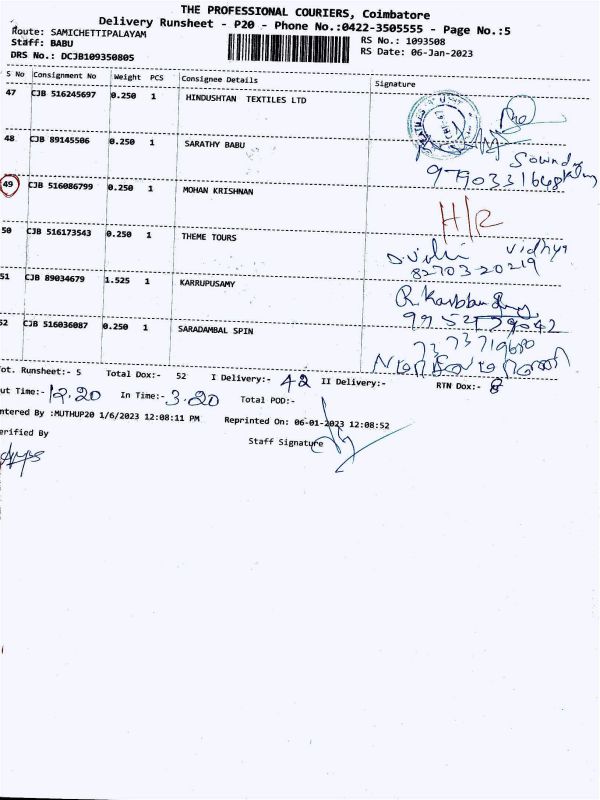 THE PROFESSIONAL COURIERS, Coimbatore
Delivery Runsheet - P20 - Phone No.:0422-3505555 - Page No.:5
Route: SAMICHETTIPALAYAM
Staff: BABU
DRS No.: DCJB109350805
RS No.: 1093508
RS Date: 06-Jan-2023
S No Consignment No Weight PCS Consignee Details Signature
47 CJB 516245697 0.250 1 HINDUSHTAN TEXTILES LTD
48 CJB 89145506 0.250 1 SARATHY BABU
9790331648
49 CJB 516086799 0.250 1 MOHAN KRISHNAN H/R
50 CJB 516173543 0.250 1 THEME TOURS
Vidhya
82703-20219
51 CJB 89034679 1.525 1 KARRUPUSAMY
52 CJB 516036087 0.250 1 SARADAMBAL SPIN
ot. Runsheet:- 5 Total Dox:- 52 I Delivery:- 42 II Delivery:- RTN Dox:- 8
ut Time:- 12.20 In Time:- 3.20 Total POD:-
ntered By :MUTHUP20 1/6/2023 12:08:11 PM Reprinted On: 06-01-2023 12:08:52
erified By Staff Signature